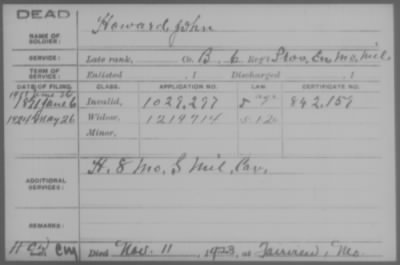 DEAD
NAME OF SOLDIER: Howard, John
SERVICE: Late rank, Co. B, 6 Reg't Prov. En. Mo. Mil.
TERM OF SERVICE: Enlisted , 1 Discharged , 1
DATE OF FILING. CLASS. APPLICATION NO. LAW. CERTIFICATE NO.
1891 June 6 Invalid, 1029,297 age 842,159
1924 May 26 Widow, 1219714
Minor,
ADDITIONAL SERVICES: H. 8 Mo. S. Mil. Cav.
REMARKS:
Died Nov. 11, 1923, at Fairview, Mo.